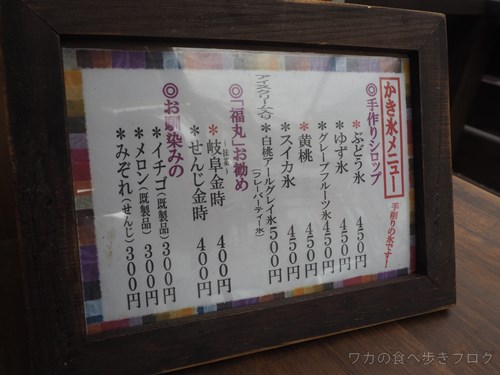 かき氷メニュー
手削りの氷です！
◎手作りシロップ
＊ぶどう氷 450円
＊ゆず氷 450円
＊グレープフルーツ氷 450円
＊黄桃 450円
＊スイカ氷 450円
＊白桃アールグレイ氷 500円
(フレーバーティー氷)
◎「福丸」お勧め
～抹茶～
＊岐阜金時 400円
＊せんじ金時 400円
◎お馴染みの
＊イチゴ(既製品) 300円
＊メロン(既製品) 300円
＊みぞれ(せんじ) 300円
ワカの食べ歩きブログ